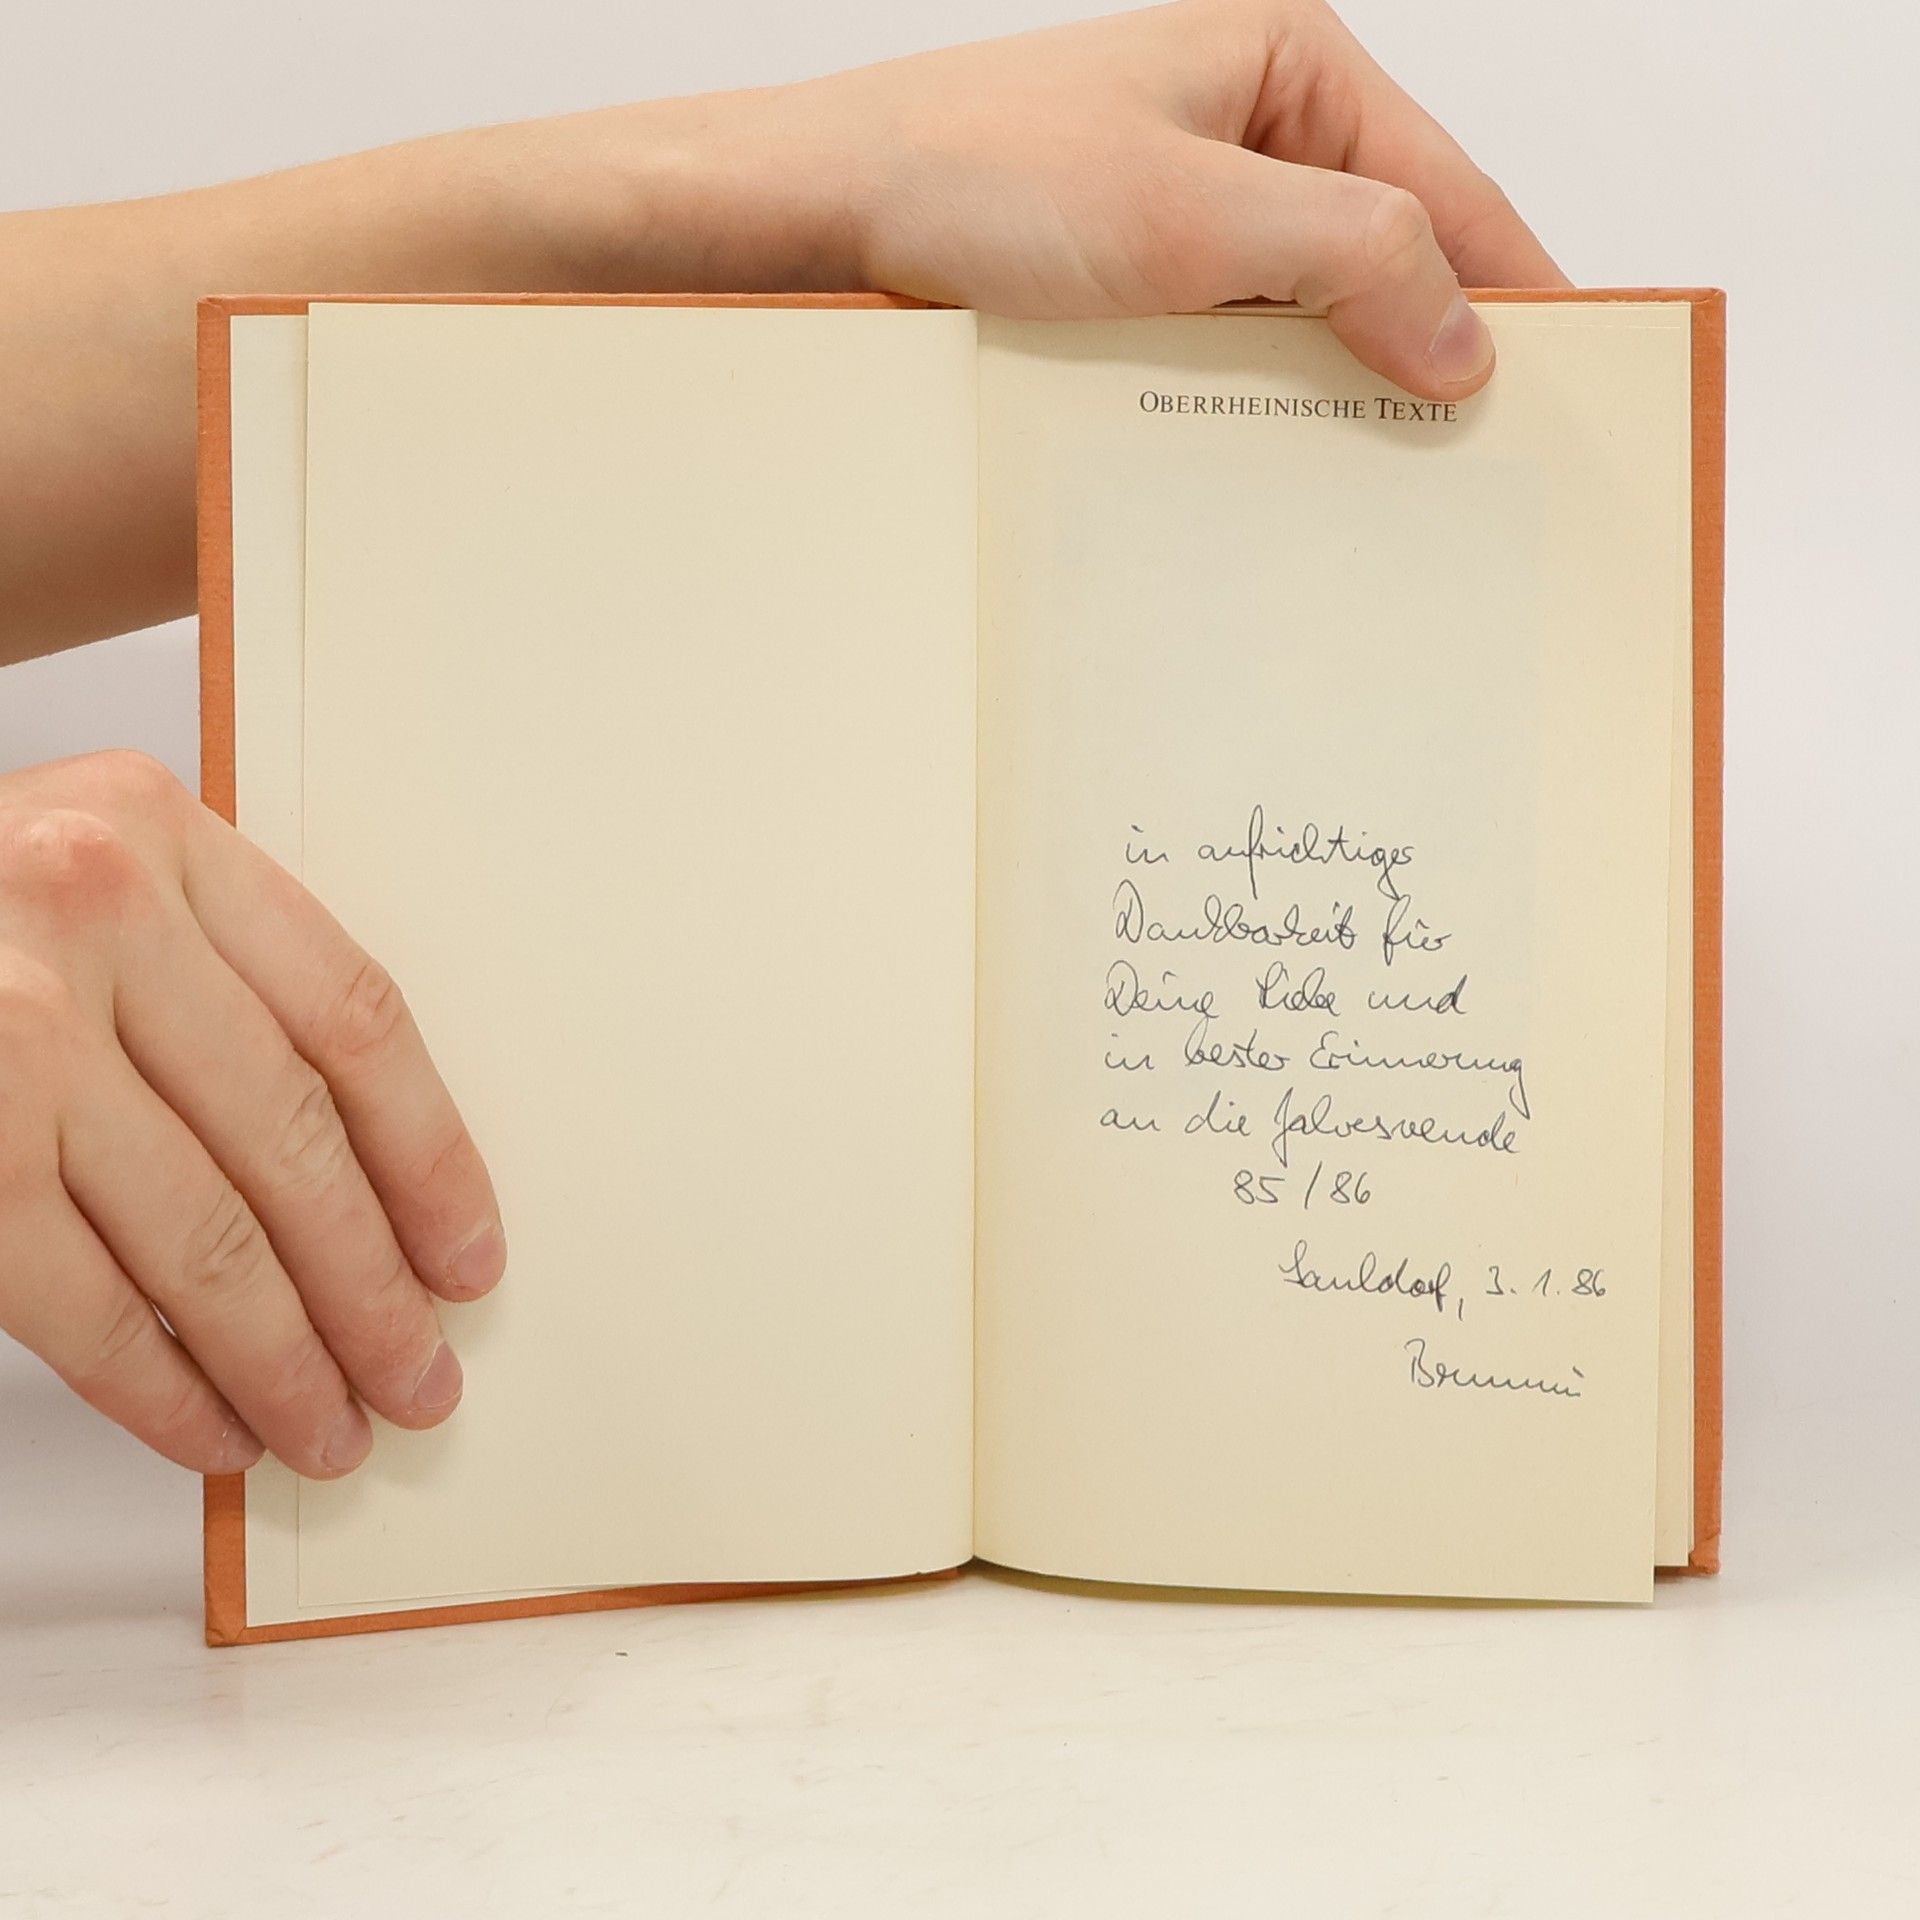 OBERRHEINISCHE TEXTE
in aufrichtiger
Dankbarkeit für
Deine Liebe und
in bester Erinnerung
an die Jahreswende
85 / 86
Sauldorf, 3. 1. 86